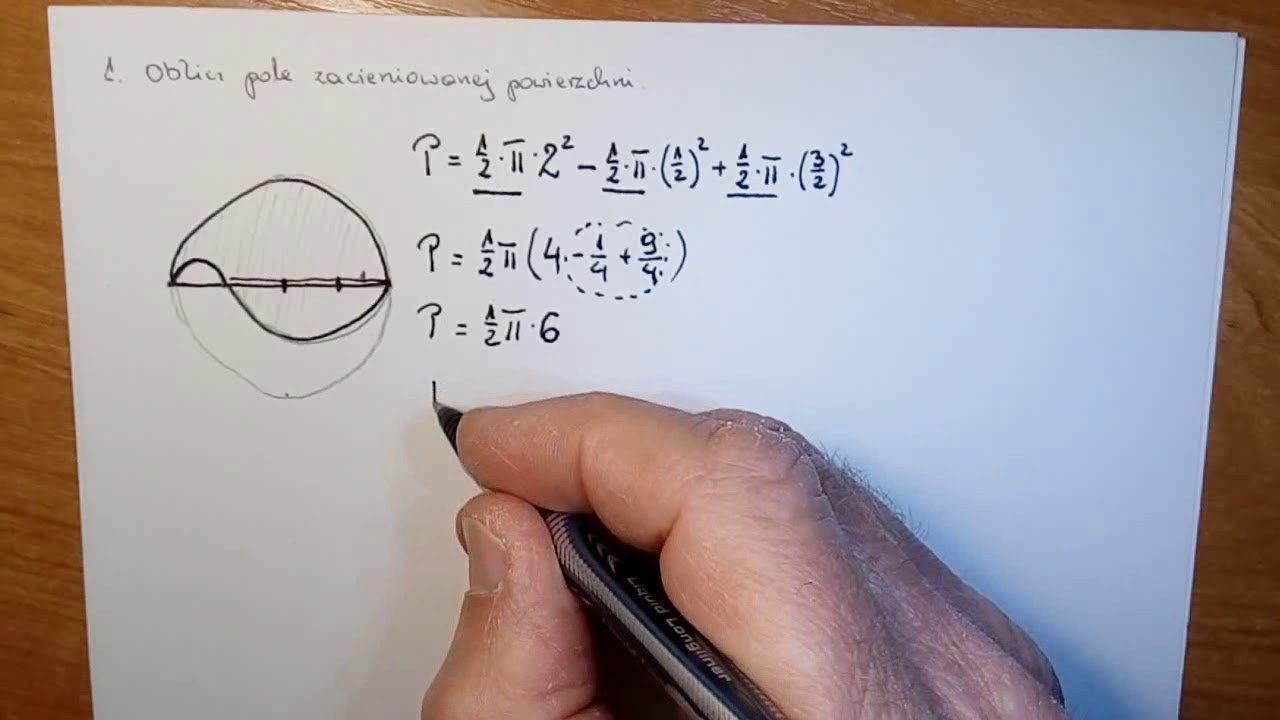 1. Oblicz pole zacieniowanej powierzchni.
P = 1/2 · π · 2² − 1/2 · π · (1/2)² + 1/2 · π · (3/2)²
P = 1/2 π (4 − 1/4 + 9/4)
P = 1/2 π · 6
1
Liquid Longliner